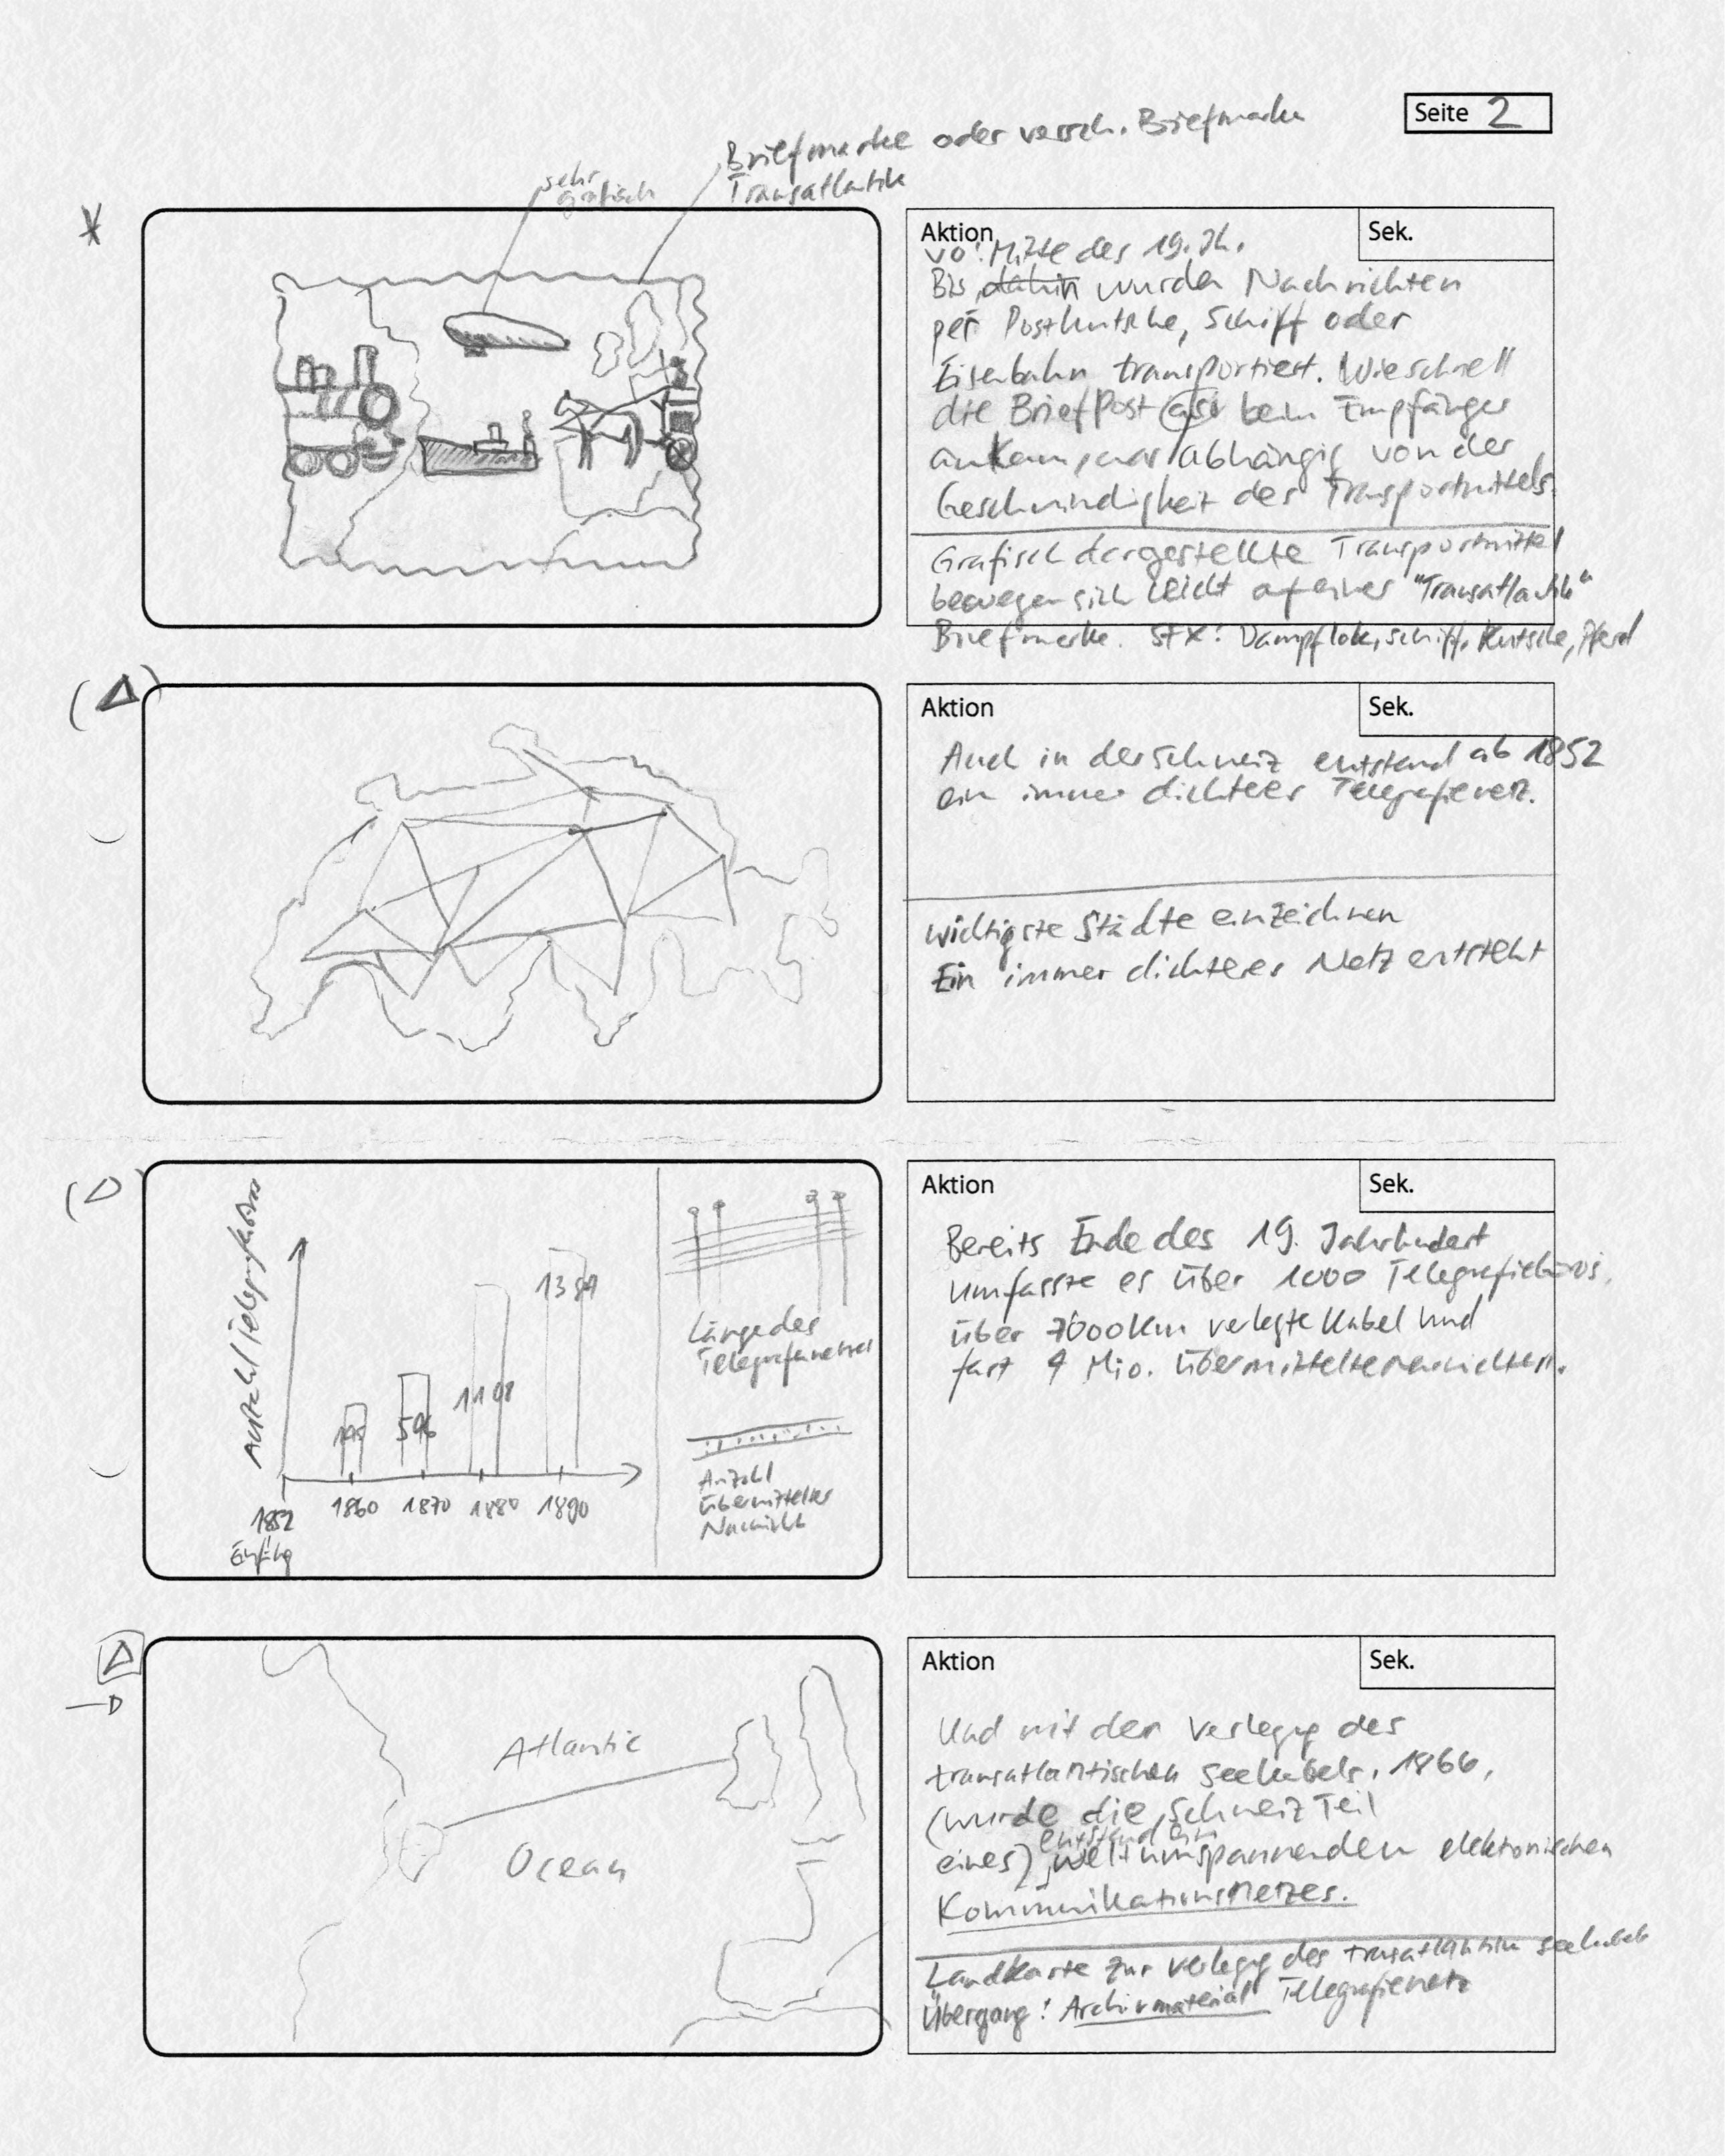 Seite 2
Briefmarke oder versch. Briefmarke
Transatlantik
sehr
grafisch
Aktion
Sek.
VO: Mitte des 19. Jh.
Bis dahin wurden Nachrichten
per Postkutsche, Schiff oder
Eisenbahn transportiert. Wie schnell
die Briefpost beim Empfänger
ankam, war abhängig von der
Geschwindigkeit des Transportmittels.
Grafisch dargestellte Transportmittel
bewegen sich leicht auf einer "Transatlantik"
Briefmarke. SFX: Dampflok, Schiff, Kutsche, Pferd
Aktion
Sek.
Auch in der Schweiz entstand ab 1852
ein immer dichteres Telegrafienetz.
wichtigste Städte einzeichnen
Ein immer dichteres Netz entsteht
Anzahl Telegrafenbüros
1108
1860 1870 1880 1890
1852
Länge des
Telegrafennetzes
Anzahl
übermittelter
Nachricht
Aktion
Sek.
Bereits Ende des 19. Jahrhundert
umfasste es über 1000 Telegrafiebüros,
über 7000 km verlegte Kabel und
fast 4 Mio. übermittelte Nachrichten.
Atlantic
Ocean
Aktion
Sek.
Und mit der Verlegung des
transatlantischen Seekabels, 1866,
(wurde die Schweiz Teil
entstand ein
eines) weltumspannenden elektronischen
Kommunikationsnetzes.
Landkarte zur Verlegung des transatlantischen Seekabels
Übergang: Archivmaterial Telegrafienetz